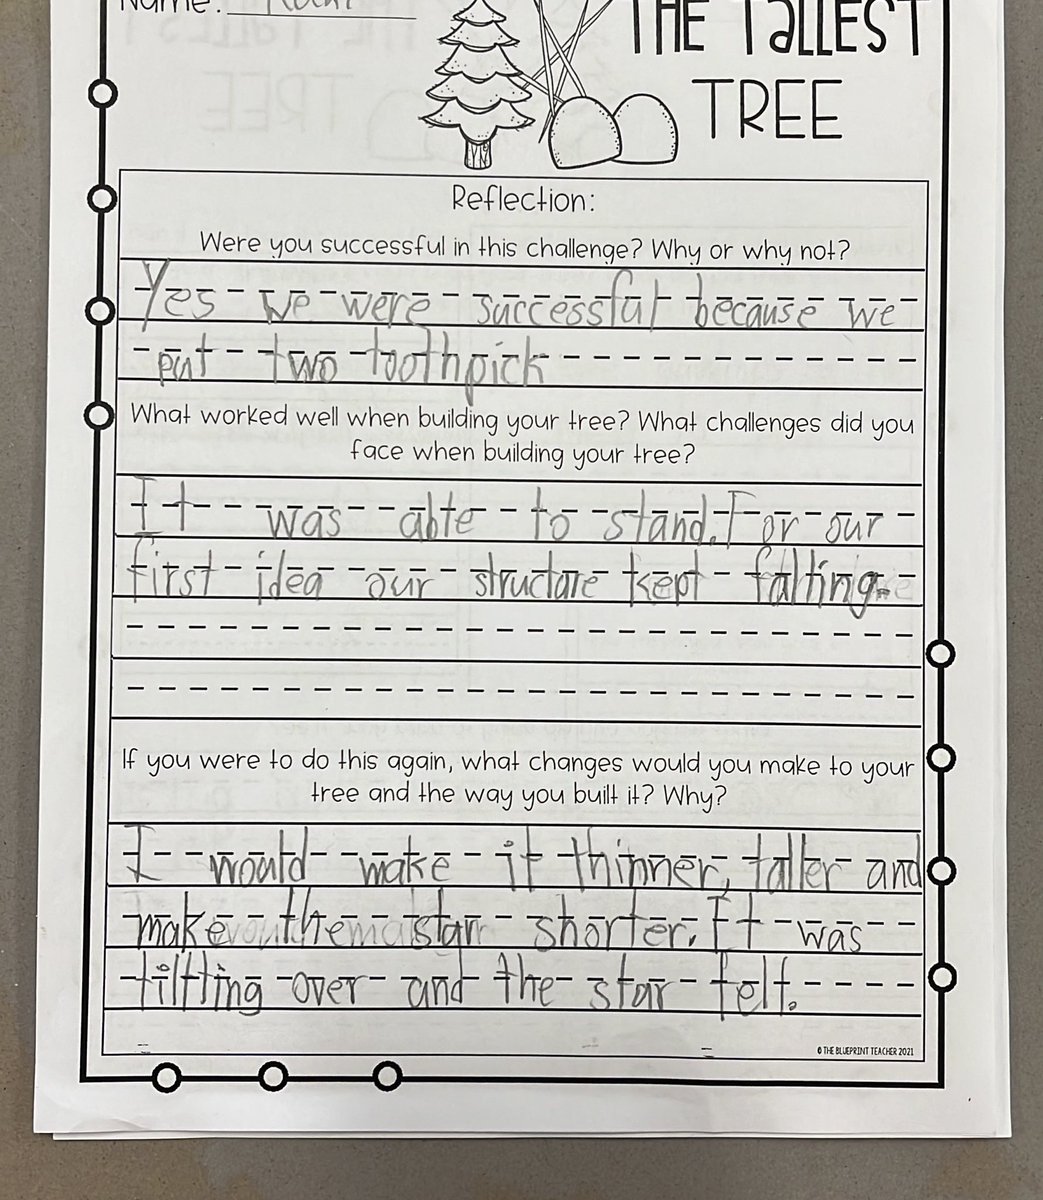 Name:
THE TALLEST
TREE
Reflection:
Were you successful in this challenge? Why or why not?
Yes we were successful because we
put two toothpick
What worked well when building your tree? What challenges did you
face when building your tree?
It was able to stand. For our
first idea our structure kept falling.
If you were to do this again, what changes would you make to your
tree and the way you built it? Why?
I would make it thinner, taller and
make the star shorter. It was
tiltting over and the star fell.
© THE BLUEPRINT TEACHER 2021